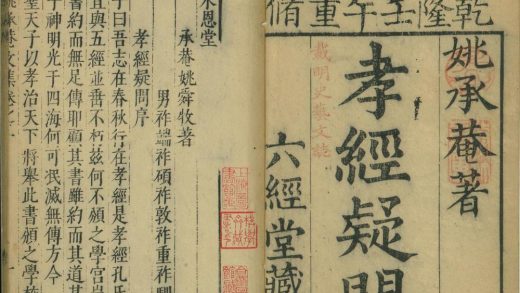 乾隆壬午重脩
姚承菴著
孝經疑問
載明史藝文誌
六經堂藏
來恩堂
承菴姚舜牧著
男祚端祚碩祚敦祚重祚馴
孝經疑問序
子曰吾志在春秋行在孝經是孝經孔氏
宜與五經並垂不朽茲何不頒之學宮豈
書約而無足傳耶顧其書雖約而其道甚
于神明光于四海何可泯滅無傳方今
聖天子以孝治天下將舉此書頒之學校
姚承菴文集卷之一